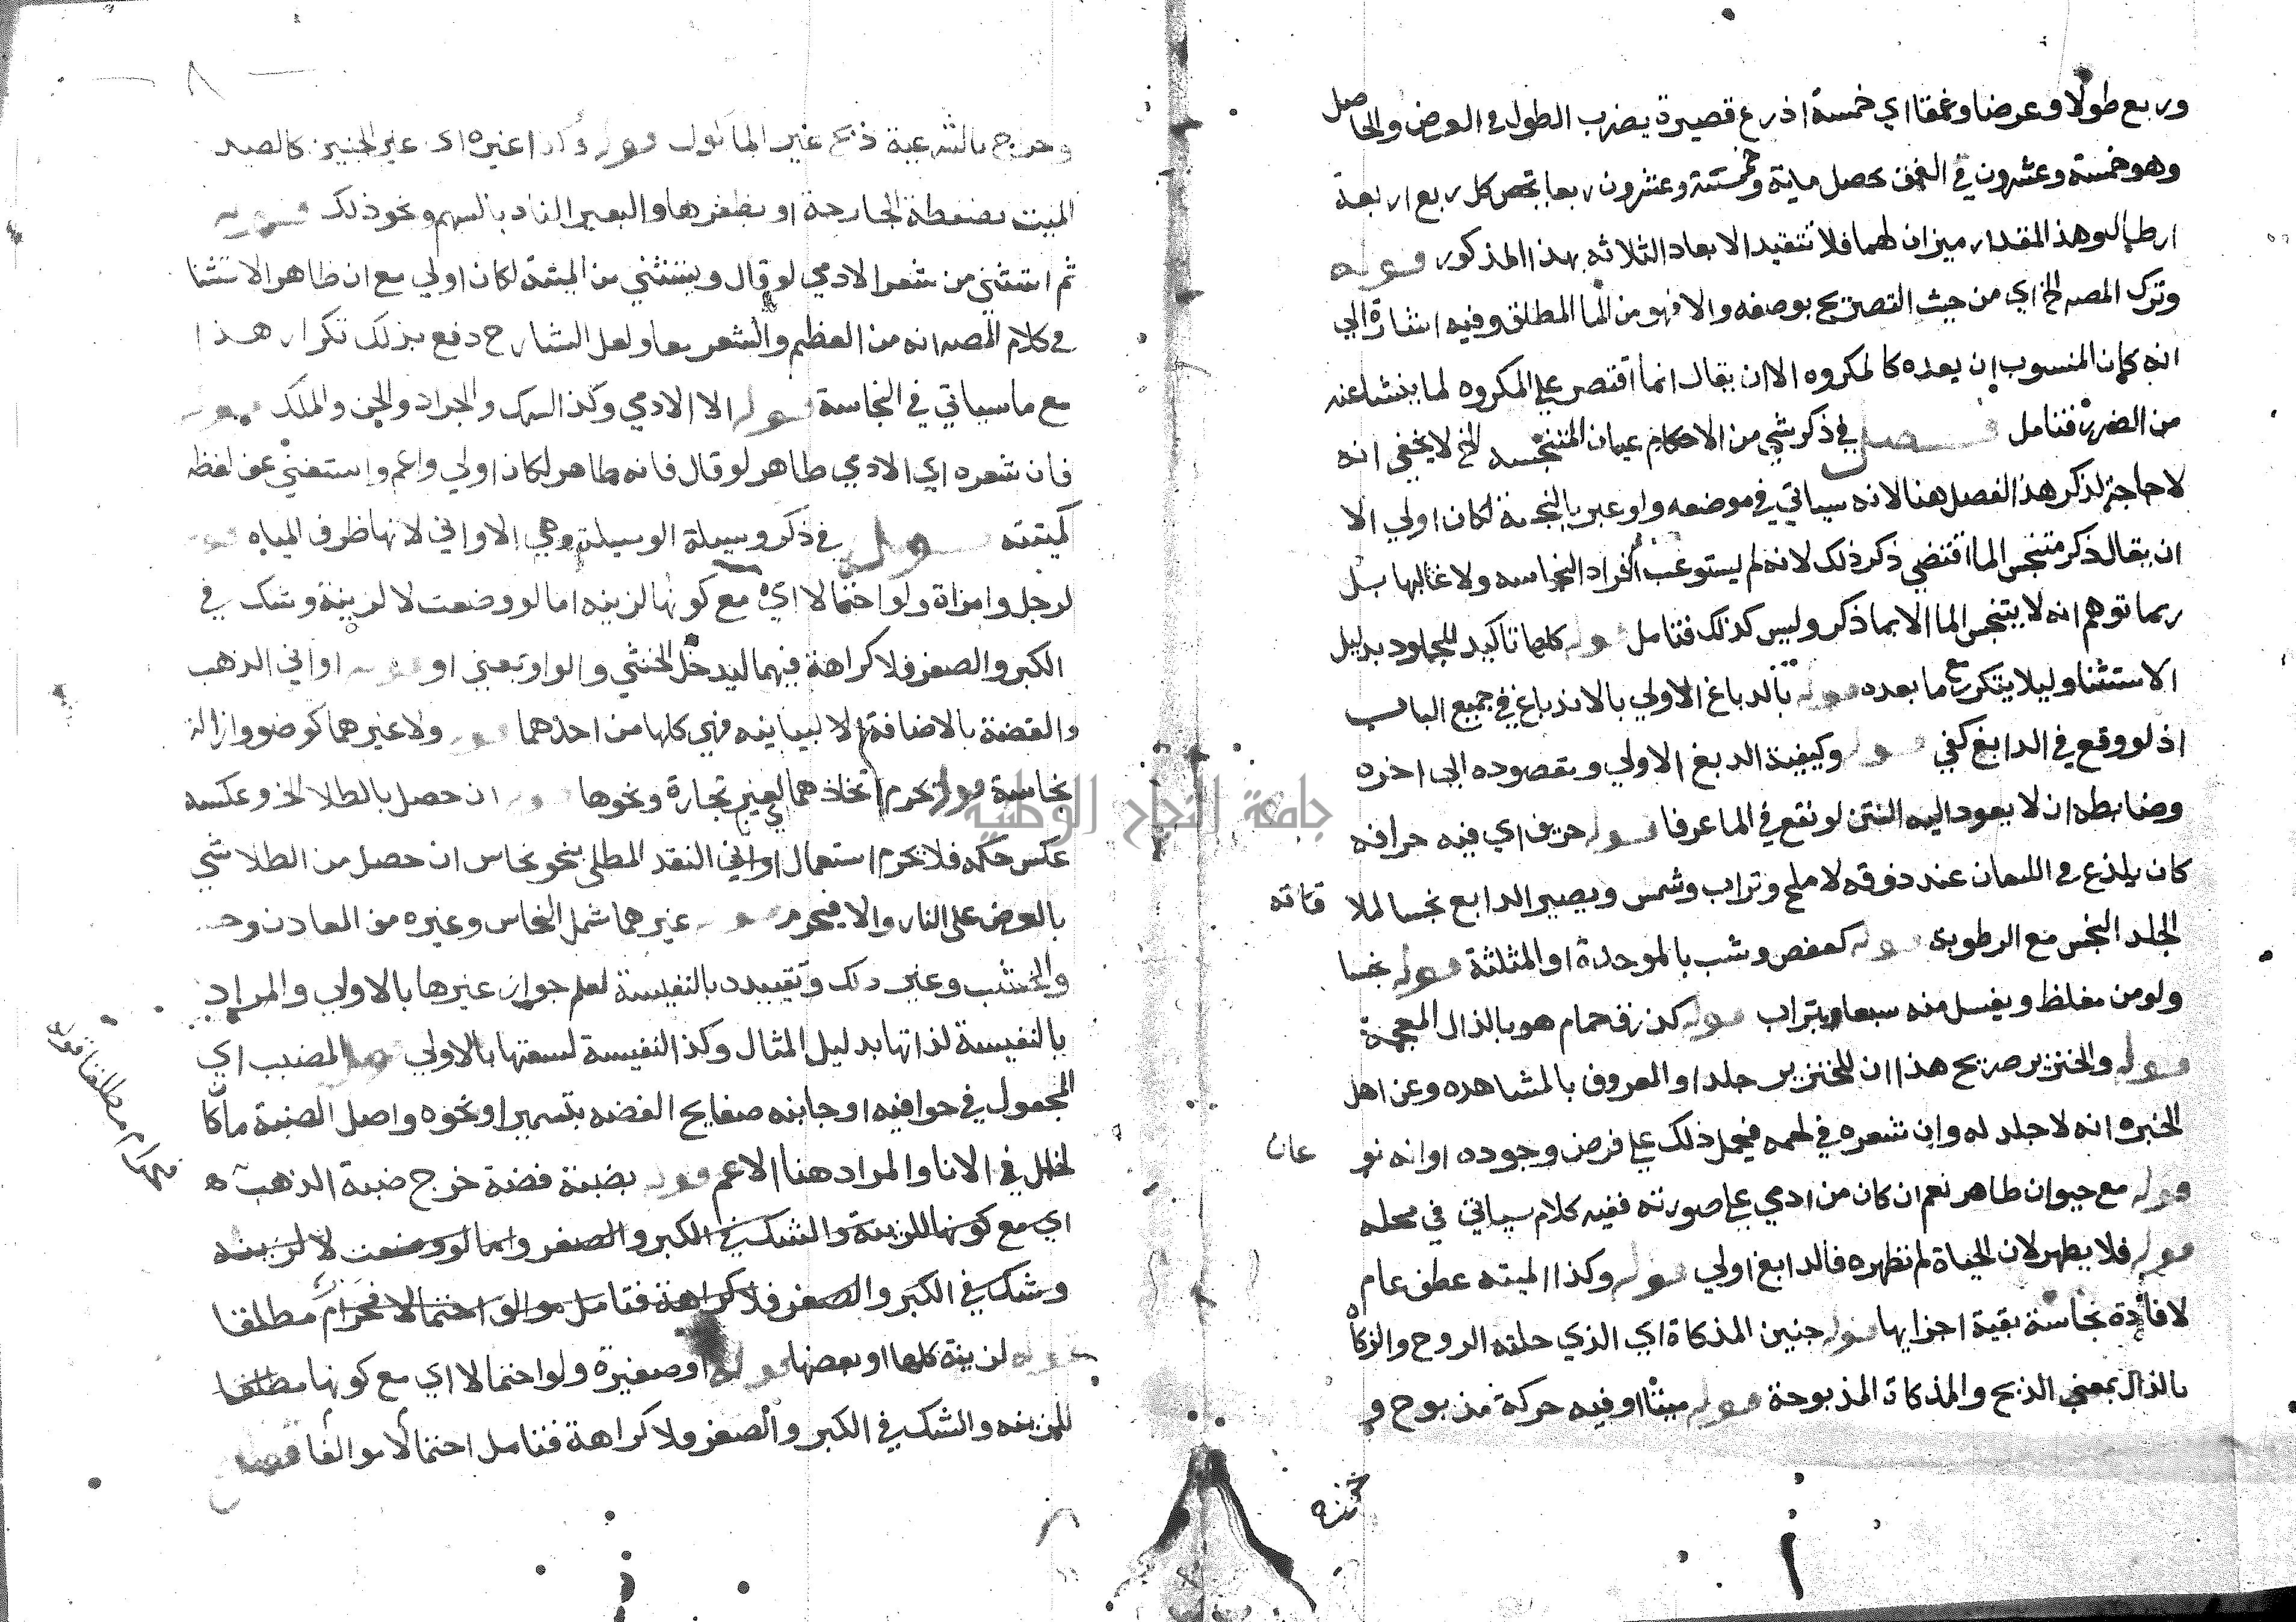 وربع طولا وعرضا وعمقا اي خمسة اذرع قصيرة يضرب الطول في العرض والحاصل
وهو خمسة وعشرون في العمق يحصل ماية وخمسة وعشرون ربعا يخص كل ربع اربعة
ارطال وهذ المقدار ميزان لهما فلا تتقيد الابعاد الثلاثه بهذا المذكور قوله
وترك المصه الخ اي من حيث التصريح بوصفه والا فهو من الما المطلق وفيه اشارة الي
انه كان المنسوب ان يعده كالمكروه الا ان يقال انما اقتصر علي المكروه لما ينشا عنه
من الضرر فتامل فصل في ذكر شي من الاعيان المتنجسه الخ لا يخفي انه
لا حاجة لذكر هذ الفصل هنا لانه سياتي في موضعه ولو عبر بالنجسة لكان اولي الا
ان يقال ذكر متنجس الما اقتضي ذكر ذلك لانه لم يستوعب افراد النجاسه ولا غالبها بل
ربما توهم انه لا يتنجس الما الا بما ذكر وليس كذلك فتامل قوله كلها تاكيد للجلود بدليل
الاستثنا وليلا يتكرر مع ما بعده قوله بالدباغ الاولي بالاندباغ في جميع الباب
اذ لو وقع في الدابغ كفي قوله وكيفية الدبغ الاولي ومقصوده الي اخره
وضابطه ان لا يعود اليه النتن لو نقع في الما عرفا قوله حريف اي فيه حرافه
كان يلذع في اللسان عند ذوقه لا ملح وتراب وشمس ويصير الدابغ نجسا لملا قاته
الجلد النجس مع الرطوبة قوله كعفص وشب بالموحدة او المثلثة قوله نجسا
ولو من مغلظ ويغسل منه سبعا بتراب قوله كذرق حمام هو بالذال المعجمة
قوله والخنزير صريح هذا ان للخنزير جلد او المعروف بالمشاهده وعن اهل
الخبره انه لا جلد له وان شعره في لحمه فيحمل ذلك علي فرض وجوده او انه نو عان
قوله مع حيوان طاهر نعم ان كان من ادمي علي صورته ففيه كلام سياتي في محله
قوله فلا يطهر لان الحياة لم تطهره فالدابغ اولي قوله وكذا الميته عطف عام
لافادة نجاسة بقية اجزايها قوله جنين المذكاة اي الذي حلته الروح والزكاة
بالذال بمعني الذبح والمذكاة المذبوحة قوله ميتا او فيه حركة مذبوح و
خرج
٨
وخرج بالشرعية ذبح غير الماكول قوله وكذا غيره اي غير الجنين كالصيد
الميت بضغطة الجارحة او بظفرها والبعير الناد بالسهم ونحو ذلك قوله
ثم استثني من شعر الادمي لو قال ويستثني من الميتة لكان اولي مع ان ظاهر الاستثنا
في كلام المصه انه من العظم والشعر معا ولعل الشارح دفع بذلك تكرار هذا
مع ما سياتي في النجاسة قوله الا الادمي وكذا السمك والجراد والجن والملك قوله
فان شعره اي الادمي طاهر لو قال فانه طاهر لكان اولي واعم واستغني عن لفظه
كميتته في ذكر وسيلة الوسيلة وهي الاواني لانها ظرف المياه
لرجل وامراة ولو احتمالا اي مع كونها لزينه اما لو وضعت لا لزينة وشك في
الكبر والصغر فلا كراهة فيهما ليدخل الخنثي والواو بمعني او قوله اواني الذهب
والفضة بالاضافة البيانيه فهي كلها من احدهما قوله ولا غيرهما كوضو وازالة
نجاسة قوله يحرم اتخاذهما لغير تجارة ونحوها قوله ان حصل بالطلا الخ وعكسه
عكس حكمه فلا يحرم استعمال اواني النقد المطلي بنحو نحاس ان حصل من الطلا شي
بالعرض علي النار والا فيحرم قوله غيرهما شمل النحاس وغيره من المعادن
والخشب وغير ذلك وتقييده بالنفيسة لعلم جواز غيرها بالاولي والمراد
بالنفيسة لذاتها بدليل المثال وكذا النفيسة لصنعتها بالاولي قوله المضبب اي
المجعول في حوافيه او جانبه صفايح الفضه بتسمير او نحوه واصل الضبة ما كان
لخلل في الانا والمراد هنا الاعم قوله بضبة فضة خرج ضبة الذهب
اي مع كونها للزينة والشك في الكبر والصغر واما لو وضعت لا لزينه
وشك في الكبر والصغر فلا كراهة فتامل احتمالا فحرام مطلقا
قوله لزينة كلها او بعضها قوله او صغيرة ولو احتمالا اي مع كونها مطلقا
للزينه والشك في الكبر والصغر ولا كراهة فتامل احتمالا
جامعة النجاح الوطنية